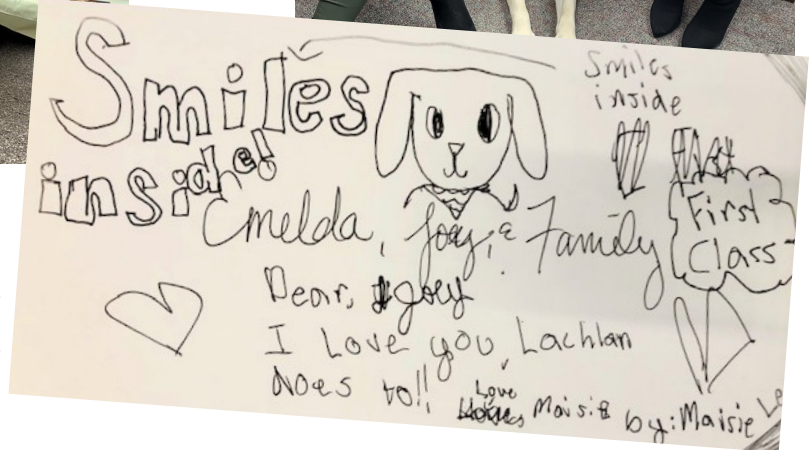 Smiles
inside!
Smiles
inside
First
Class
Emelda, Joey, & Family
Dear, Joey
I Love you, Lachlan
Does to!!
Love
Maisie by: Maisie